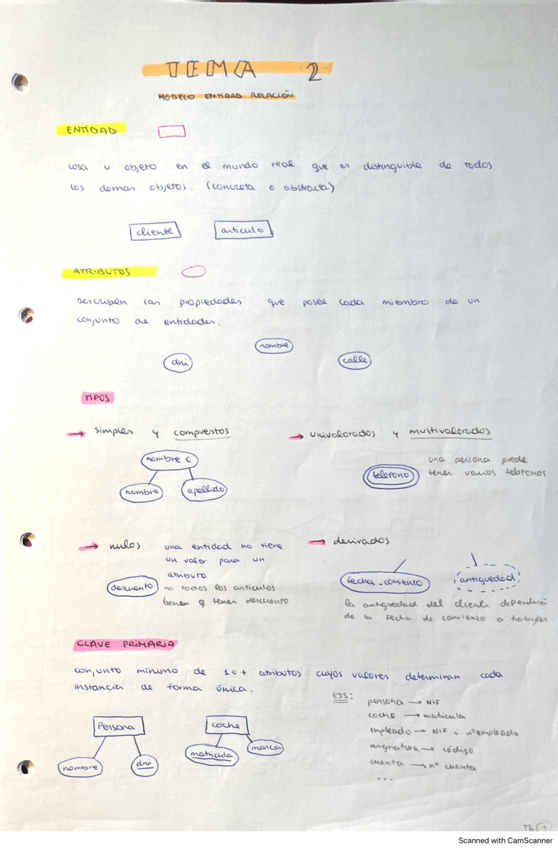 TEMA 2
MODELO ENTIDAD RELACIÓN
ENTIDAD
cosa u objeto en el mundo real que es distinguible de todos
los demas objetos. (concreta o abstracta)
cliente articulo
ATRIBUTOS
describen las propiedades que posee cada miembro de un
conjunto de entidades.
nombre
dni calle
TIPOS
→ simples y compuestos
nombre c
nombre apellido
→ univalorados y multivalorados
telefono
una persona puede
tener varios telefonos
→ nulos una entidad no tiene
un valor para un
atributo
descuento no todos los articulos
tienen q tener descuento
→ derivados
fecha_comienzo antiguedad
la antiguedad del cliente dependerá
de la fecha de comienzo a trabajar
CLAVE PRIMARIA
conjunto minimo de 1 o + atributos cuyos valores determinan cada
instancia de forma única.
Persona
nombre dni
coche
matricula marca
EJS:
persona → NIF
coche → matricula
empleado → NIF o nº empleado
asignatura → código
cuenta → nº cuenta
...
Scanned with CamScanner